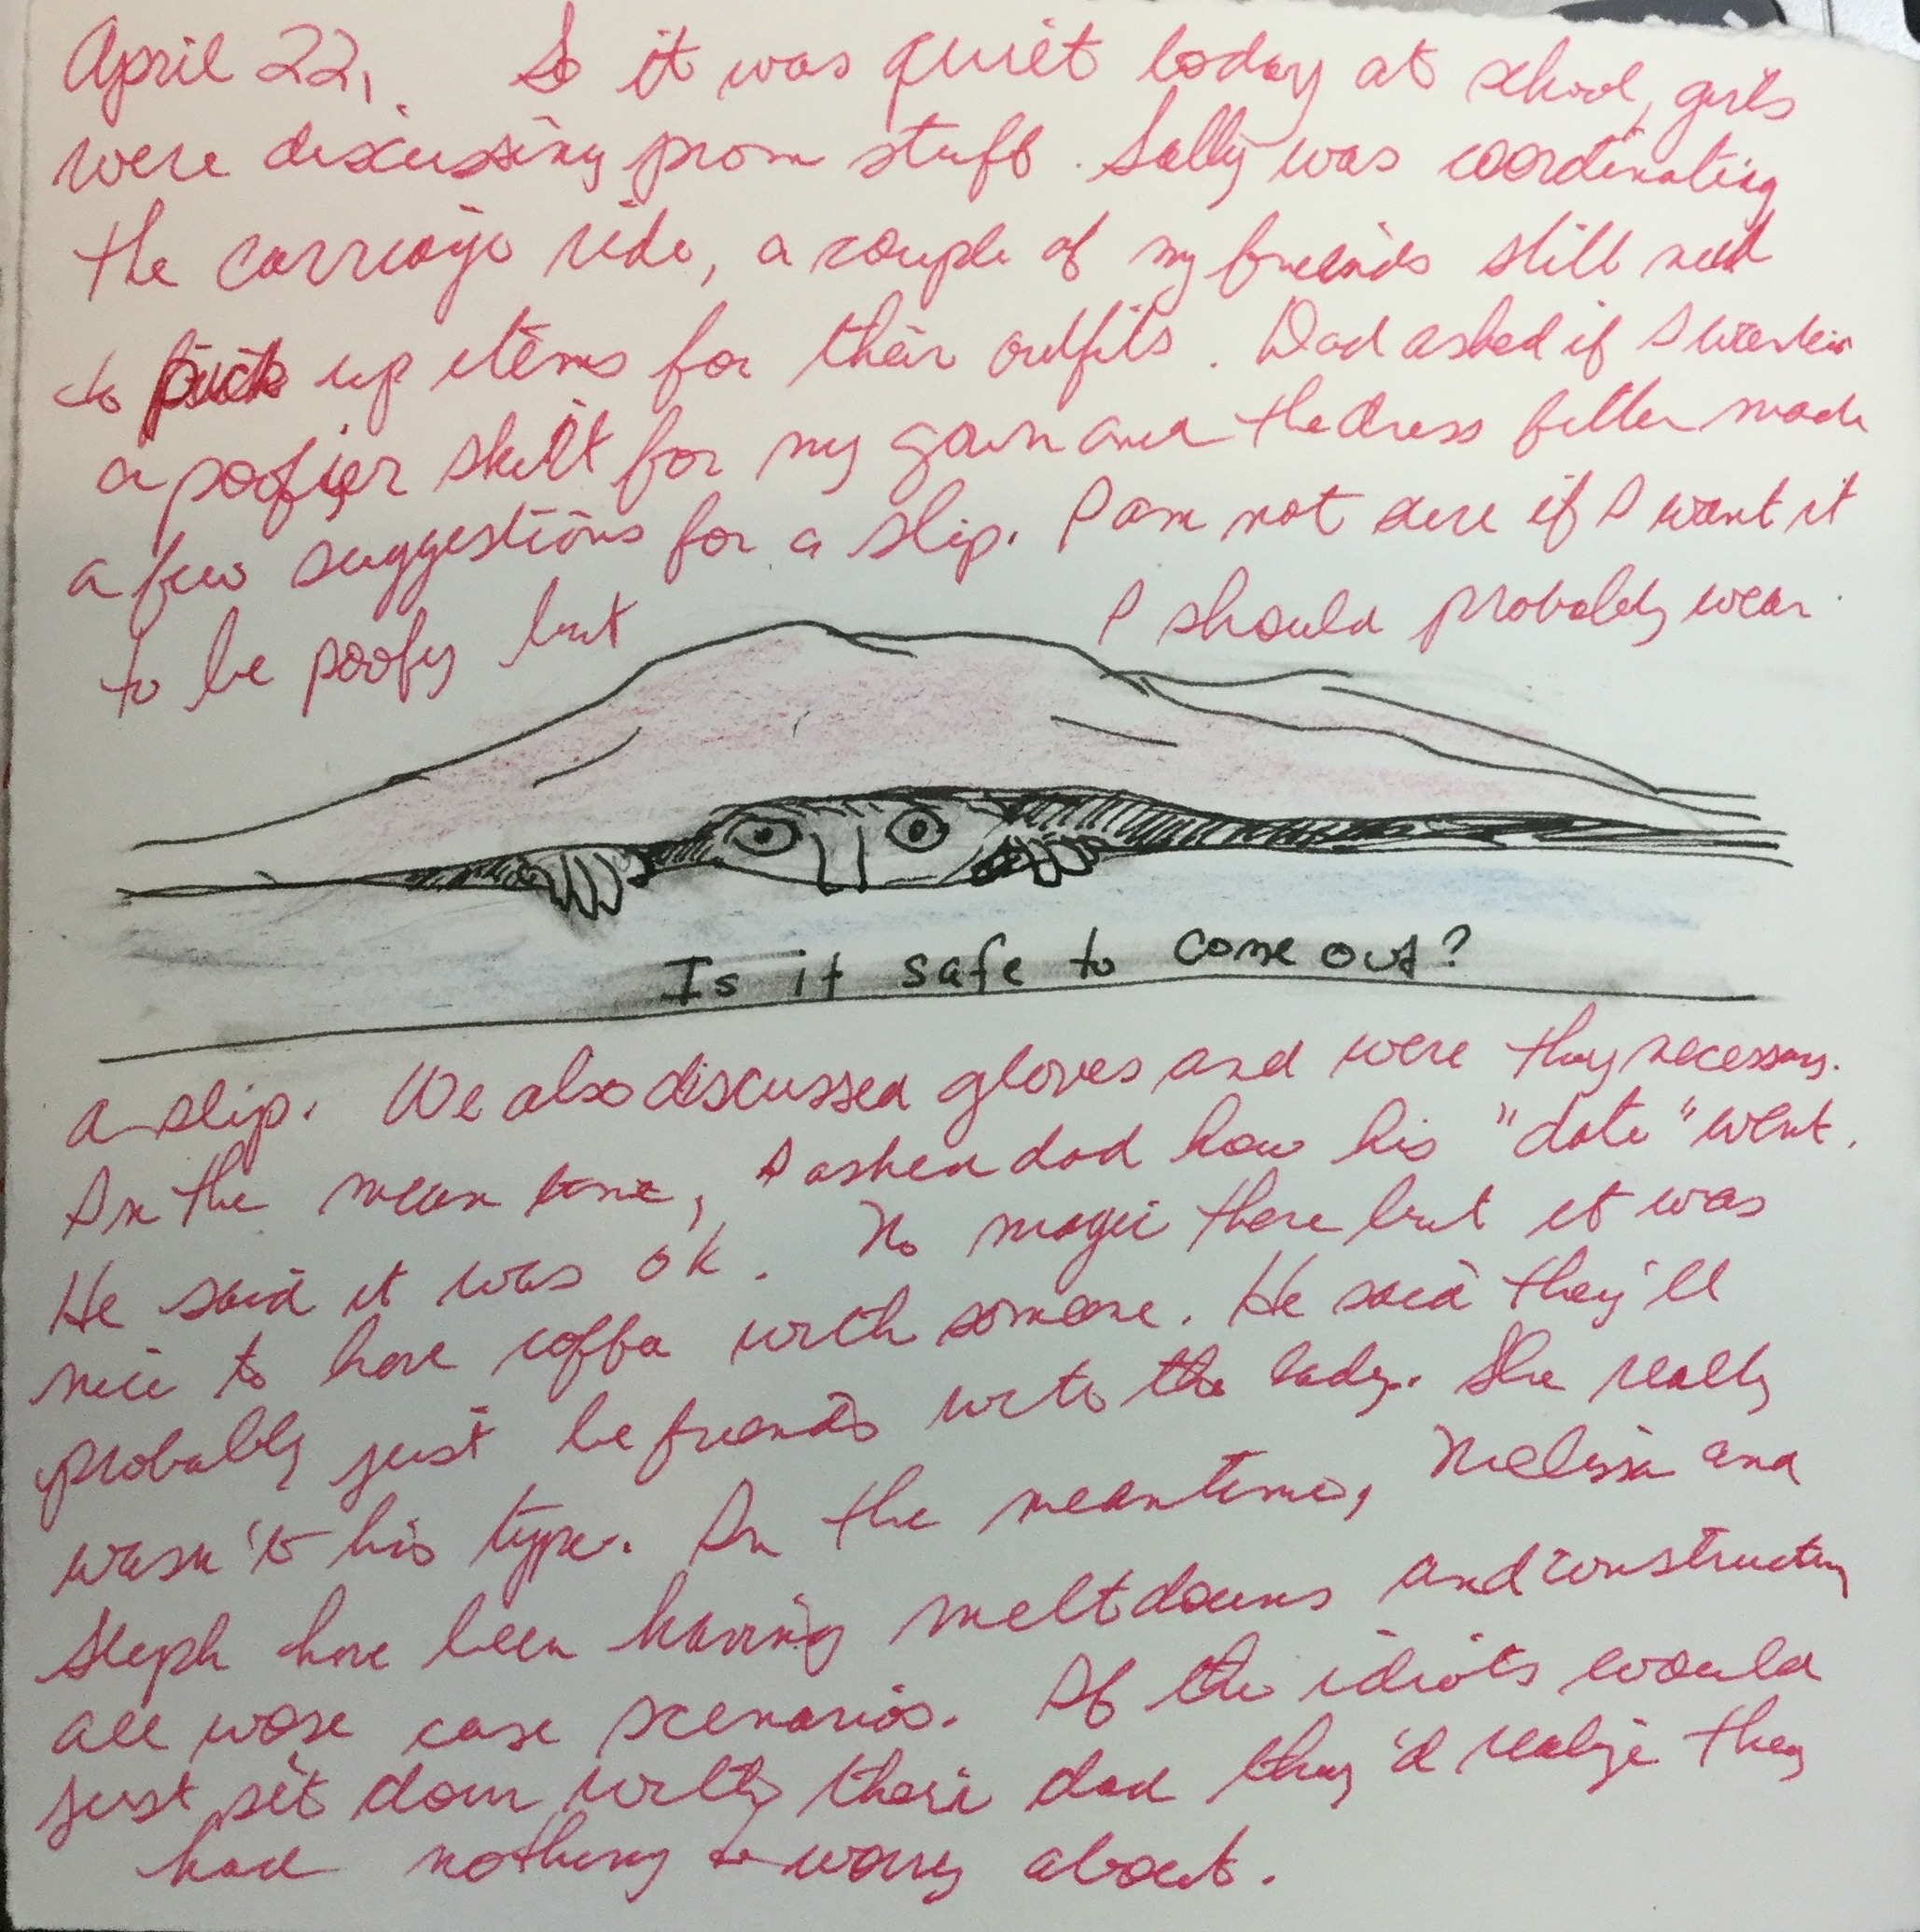 April 22. So it was quiet today at school, girls
were discussing prom stuff. Sally was coordinating
the carriage ride, a couple of my freinds still need
to pick up items for their outfits. Dad asked if I wanted
a poofier skirt for my gown and the dress fitter made
a few suggestions for a slip. I am not sure if I want it
to be poofy but I should probably wear
Is it safe to come out?
a slip. We also discussed gloves and were they necessary.
In the mean time, I asked dad how his "date" went.
He said it was ok. No magic there but it was
nice to have coffee with someone. He said they'll
probably just be friends with the lady. She really
wasn't his type. In the meantime, Melissa and
Steph have been having meltdowns and constructing
all worse case scenarios. If the idiots would
just sit down with their dad they'd realize they
had nothing to worry about.